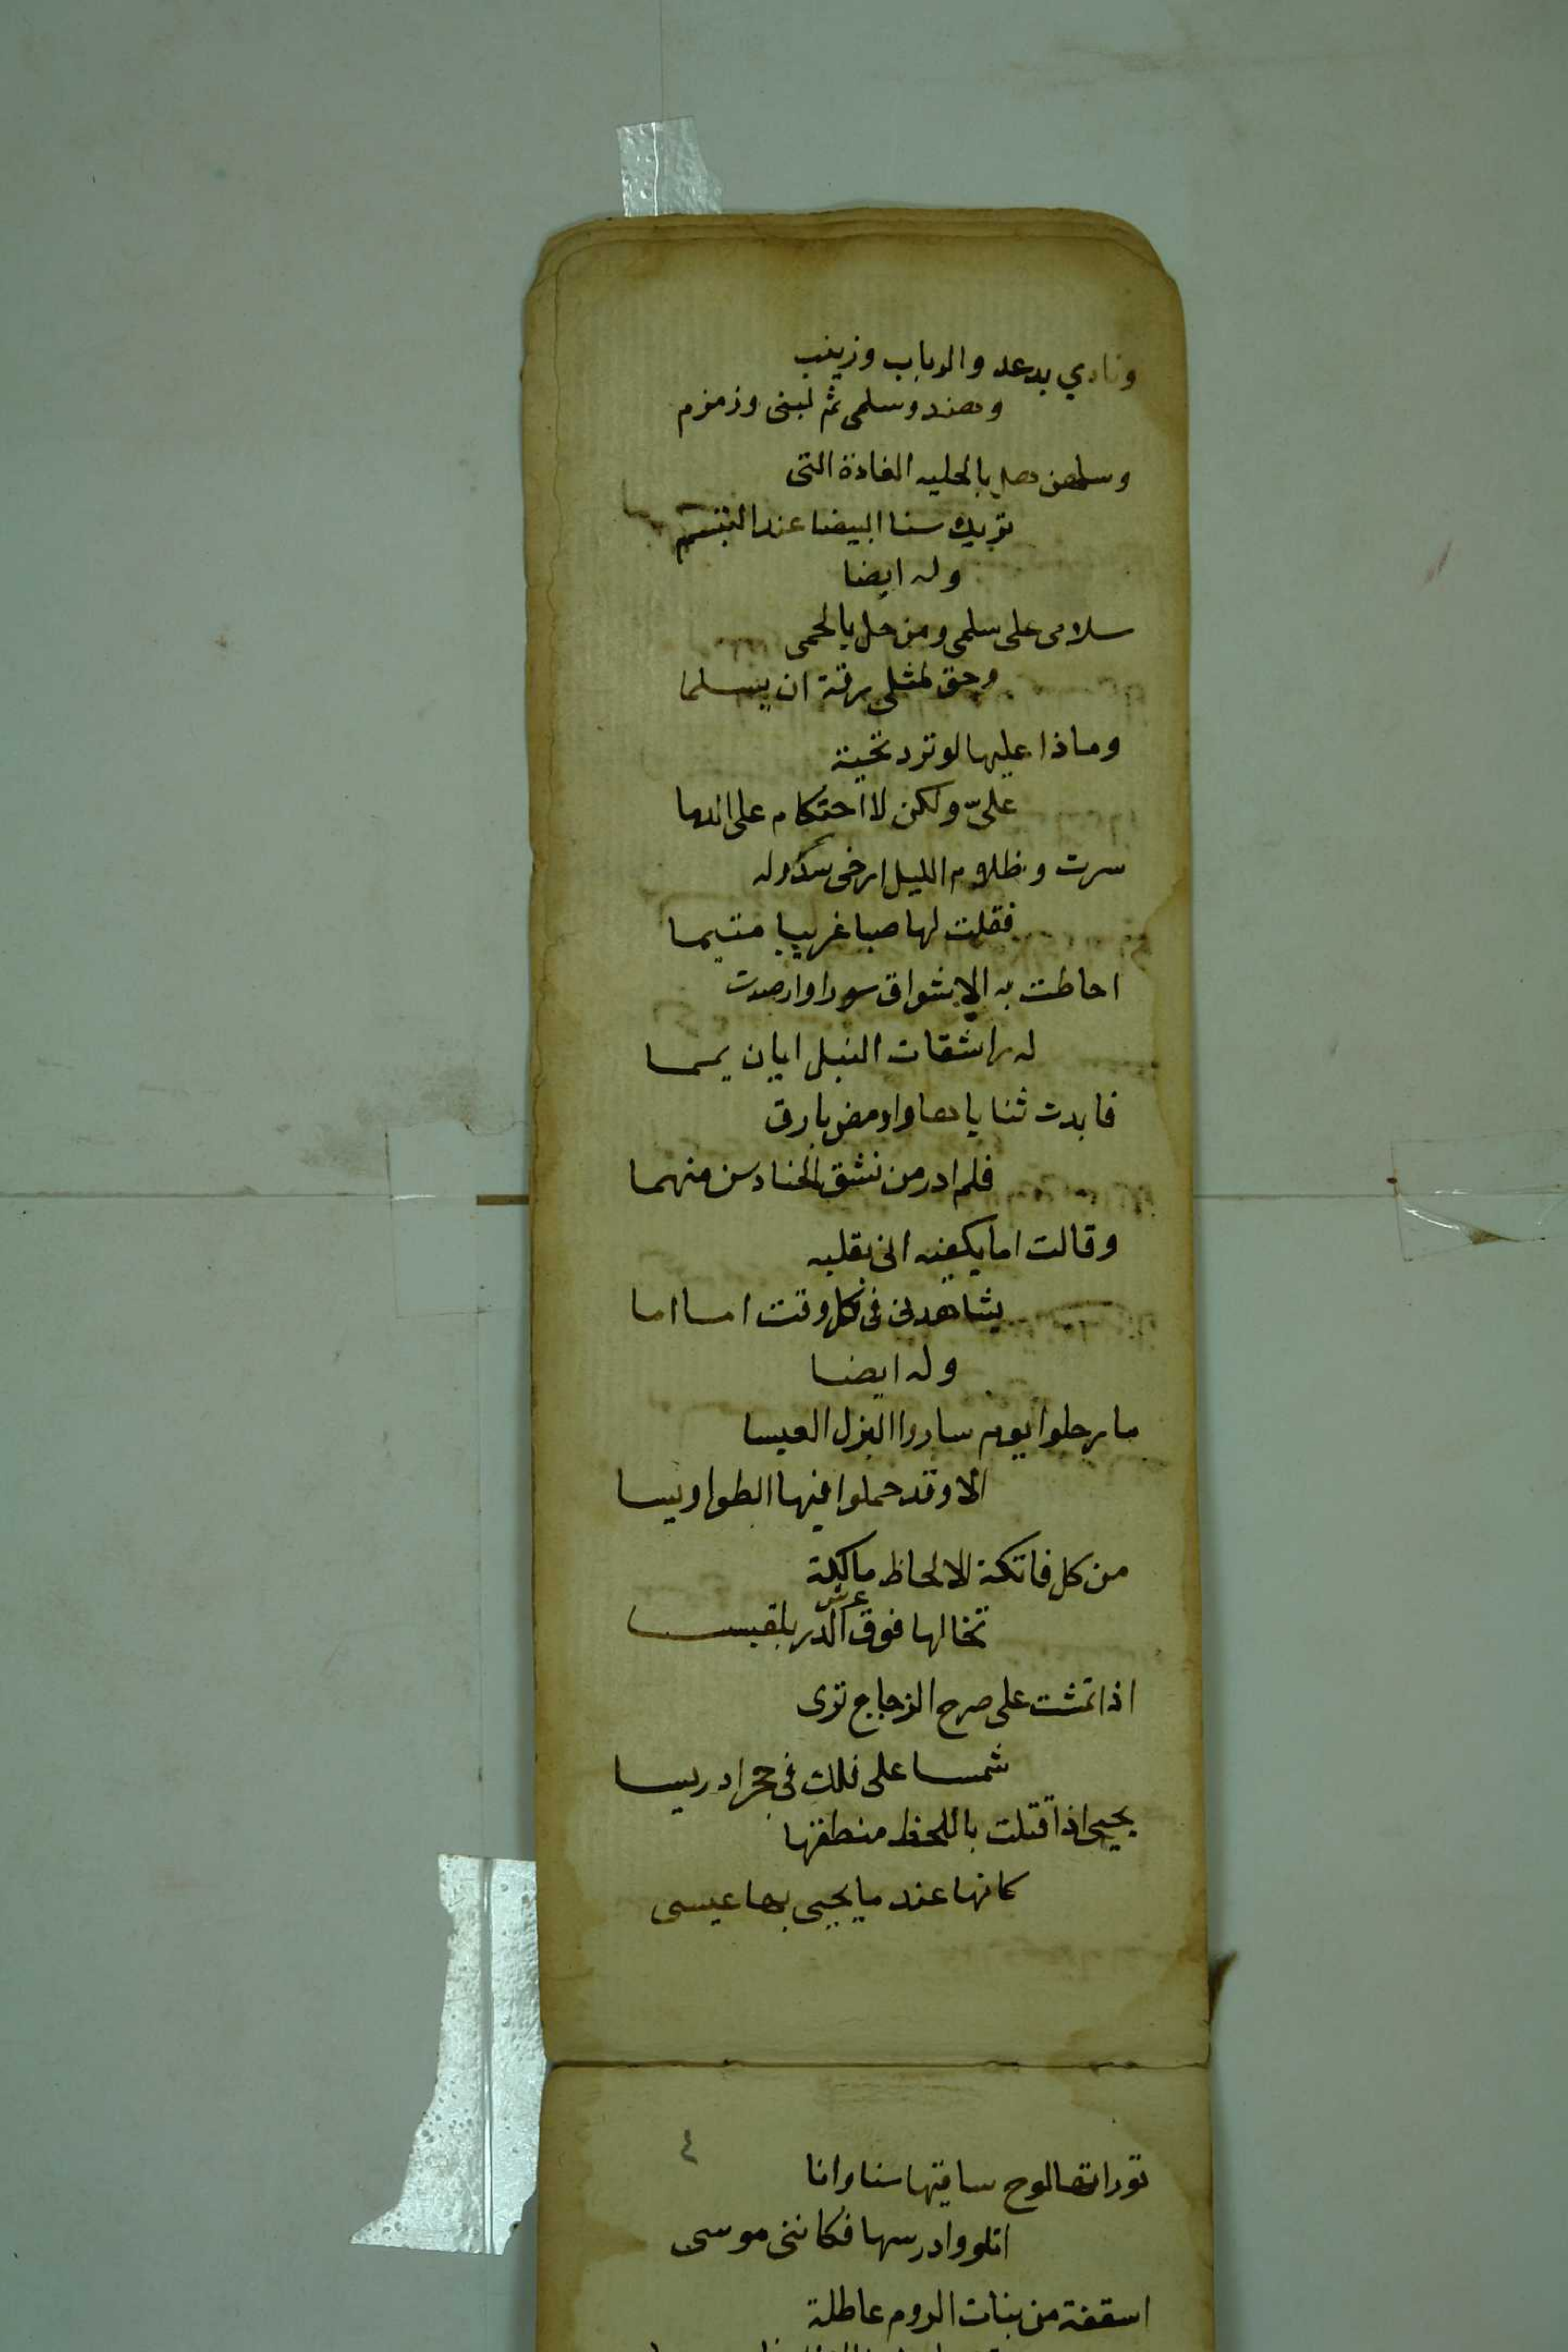 ونادي بدعد والرباب وزينب
وهند وسلمى ثم لبنى وزمزم
وسلهن هل بالحلبه الغادة التى
تريك سنا البيضا عند التبسم
وله ايضا
سلامى على سلمى ومن حل بالحمى
وحق لمثلى رقة ان يسلما
وماذا عليها لو ترد تحية
عليّ ولكن لا احتكام على الدما
سرت وظلام الليل ارخى سدوله
فقلت لها صبا غريبا متيما
احاطت به الاشواق سورا وارصدت
له راشقات النبل ايان يمما
فابدت ثناياها واومض بارق
فلم ادر من شق الحنادس منهما
وقالت اما يكفيه انى بقلبه
يشاهدنى فى كل وقت اما اما
وله ايضا
ما رحلوا يوم ساروا البزل العيسا
الا وقد حملوا فيها الطواويسا
من كل فاتكة الالحاظ مالكة
تخالها فوق عرش الدر بلقيسا
اذا تمشت على صرح الزجاج ترى
شمسا على فلك فى حجر ادريسا
يحيى اذا قتلت باللحظ منطقها
كانها عند ما يحيى بها عيسى
٤
توراتها لوح ساقيها سنا وانا
اتلو وادرسها فكاننى موسى
اسقفة من بنات الروم عاطلة